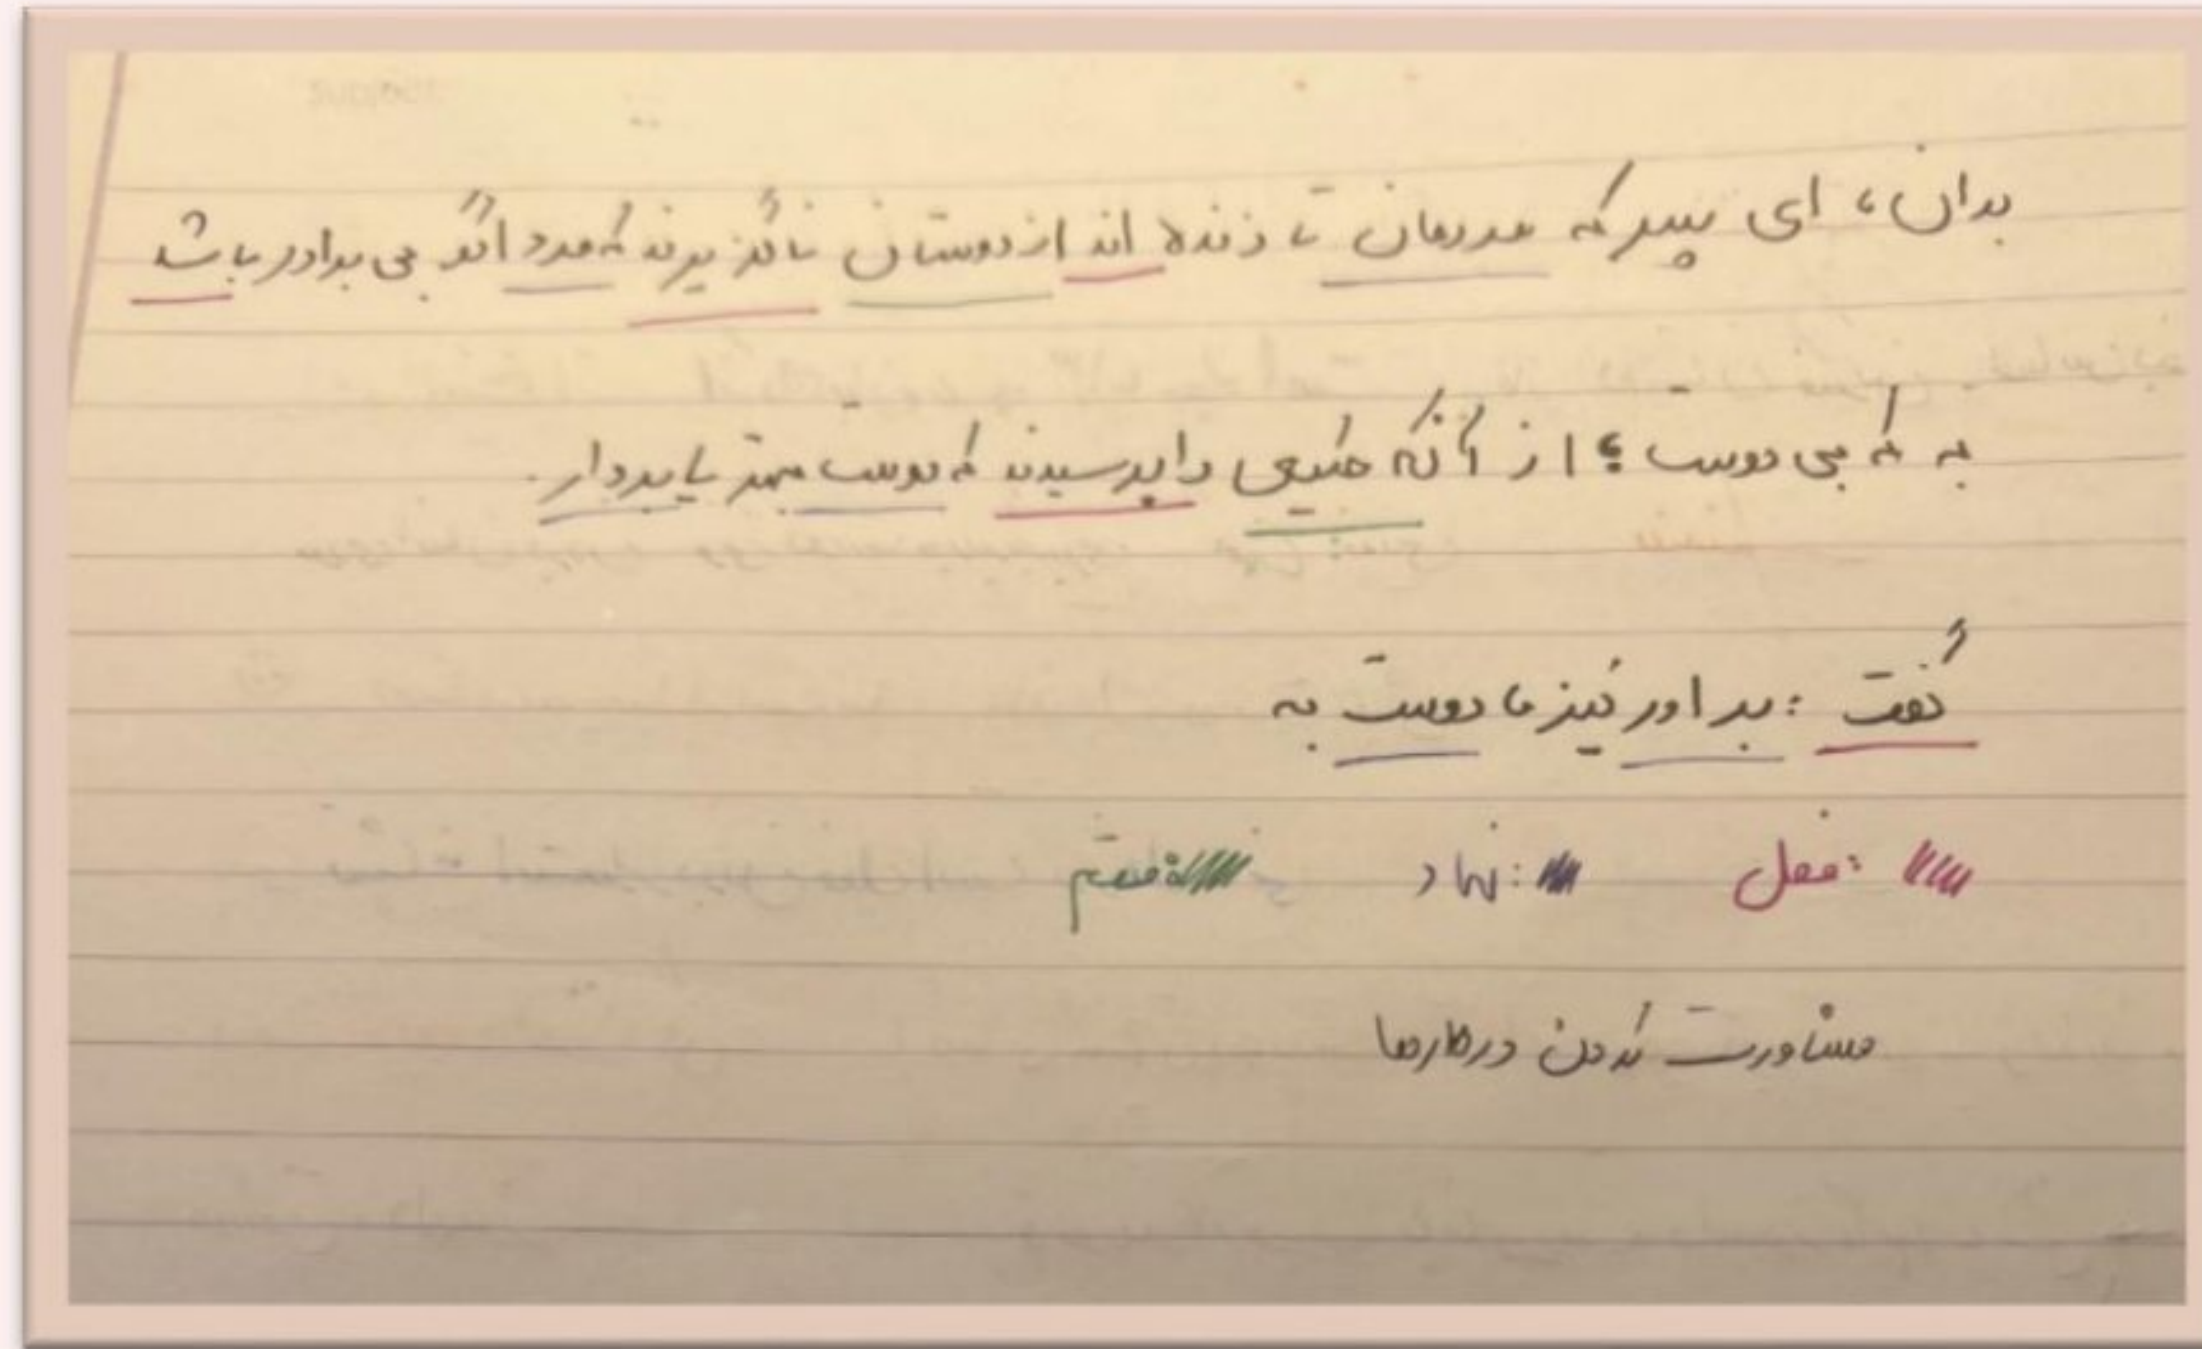 بدان، ای پسر که مردمان تا زنده اند از دوستان ناگزیرند که مرد اگر بی برادر باشد
به که بی دوست؛ از آنکه حکیمی را پرسیدند که دوست بهتر یا برادر.
گفت: برادر نیز، دوست به
فعل: نهاد: متمم:
مشاورت کردن در کارها